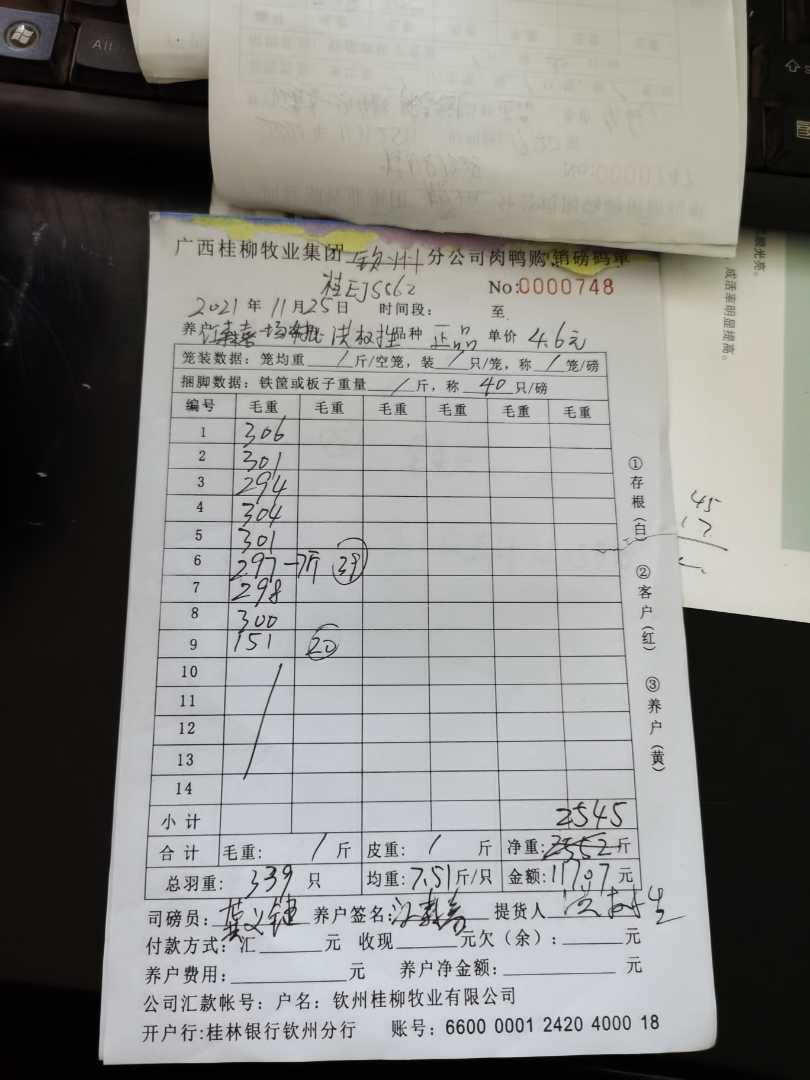 Alt
广西桂柳牧业集团 钦州 分公司肉鸭购销磅码单
桂EJ5562
No:0000748
2021年11月25日 时间段: 至
养户 洪权胜 品种 正品 单价 4.6元
笼装数据: 笼均重 / 斤/空笼, 装 / 只/笼, 称 / 笼/磅
捆脚数据: 铁筐或板子重量 / 斤, 称 40 只/磅
编号 毛重 毛重 毛重 毛重 毛重 毛重
1 306
2 301
3 294
4 304
5 301
6 297 -7斤 39
7 298
8 300
9 151 20
10
11
12
13
14
小计 2545
合计 毛重: / 斤 皮重: / 斤 净重: 2552 斤
总羽重: 339 只 均重: 7.51 斤/只 金额: 11707 元
司磅员: 养户签名: 提货人
付款方式: 汇 元 收现 元欠(余): 元
养户费用: 元 养户净金额: 元
公司汇款帐号: 户名: 钦州桂柳牧业有限公司
开户行:桂林银行钦州分行 账号: 6600 0001 2420 4000 18
①存根(白) ②客户(红) ③养户(黄)
成活率明显提高。
光亮。
45